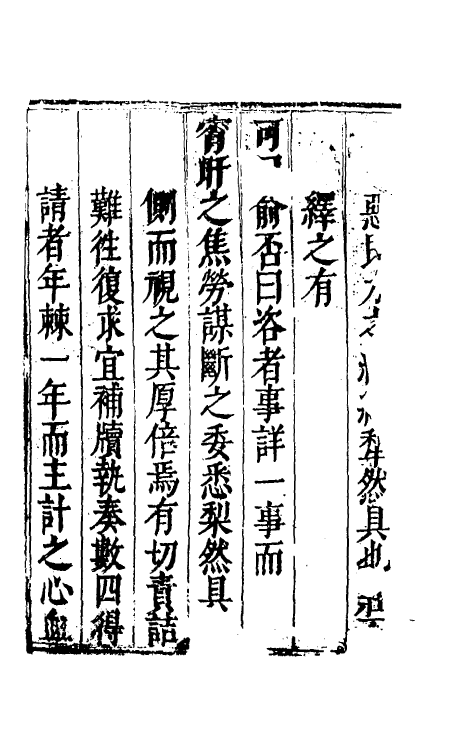 然具也
繹之有
可 俞否曰咨者事詳一事而
宵旰之焦勞謀斷之委悉犁然具
側而視之其厚倍焉有切責詰
難徃復求宜補牘執奏數四得
請者年棘一年而主計之心血